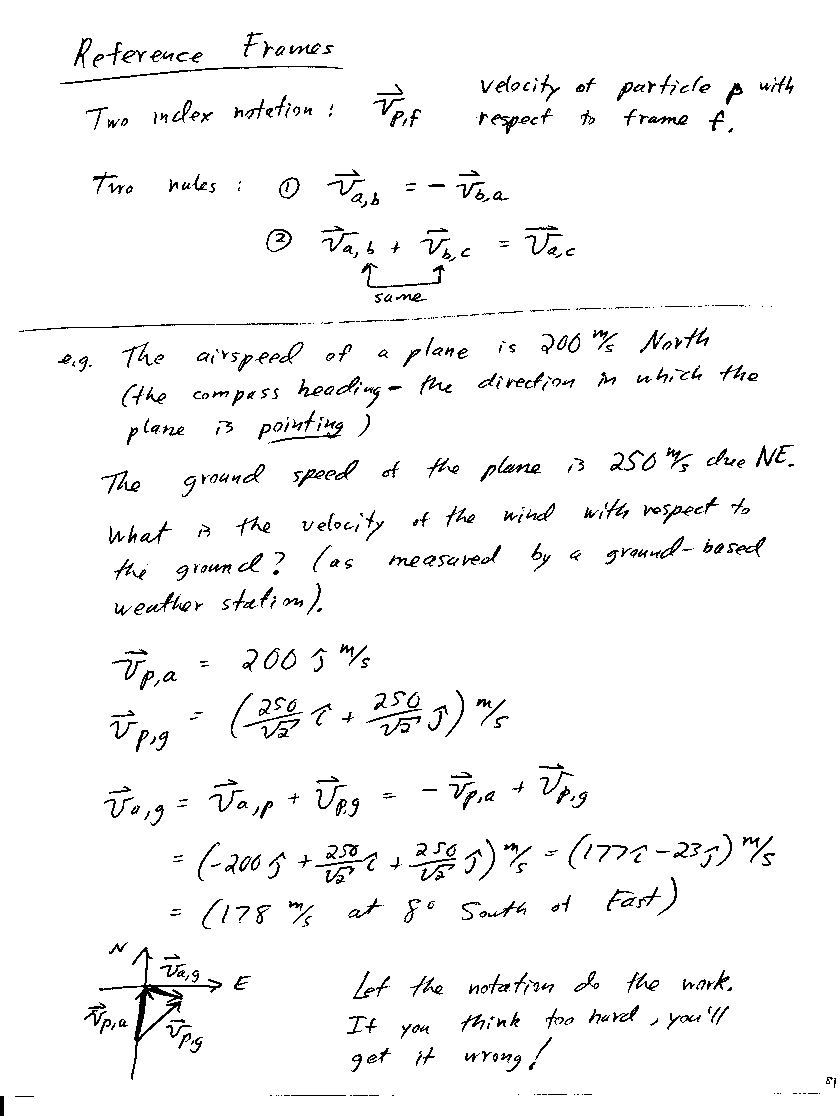 Reference Frames
Two index notation : v⃗p,f velocity of particle p with
respect to frame f.
Two rules : ① v⃗a,b = - v⃗b,a
② v⃗a,b + v⃗b,c = v⃗a,c
same
e.g. The airspeed of a plane is 200 m/s North
(the compass heading - the direction in which the
plane is pointing)
The ground speed of the plane is 250 m/s due NE.
What is the velocity of the wind with respect to
the ground? (as measured by a ground-based
weather station).
v⃗p,a = 200 ĵ m/s
v⃗p,g = (250/√2 î + 250/√2 ĵ) m/s
v⃗a,g = v⃗a,p + v⃗p,g = - v⃗p,a + v⃗p,g
= (-200 ĵ + 250/√2 î + 250/√2 ĵ) m/s = (177 î - 23 ĵ) m/s
= (178 m/s at 8° South of East)
N
v⃗a,g
E
v⃗p,a
v⃗p,g
Let the notation do the work.
If you think too hard, you'll
get it wrong!